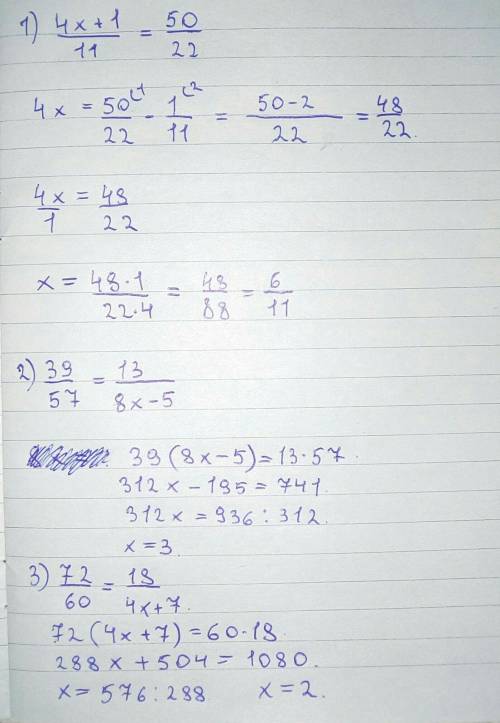 1) (4x+1)/11 = 50/22
4x = 50⌞1/22 - 1⌞2/11 = (50-2)/22 = 48/22.
4x/1 = 48/22
x = (48·1)/(22·4) = 48/88 = 6/11
2) 39/57 = 13/(8x-5)
39(8x-5)=13·57.
312x-195=741.
312x=936:312.
x=3.
3) 72/60 = 18/(4x+7.)
72(4x+7)=60·18.
288x+504=1080.
x=576:288 x=2.